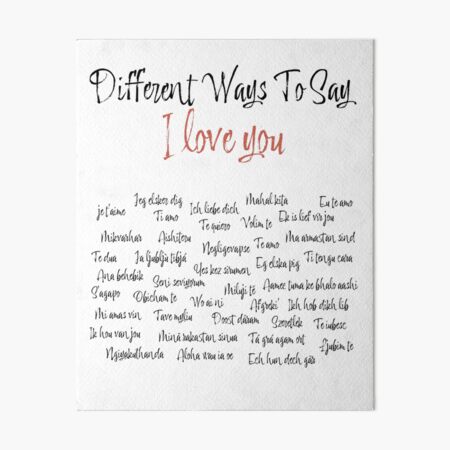 Different Ways To Say
I love you
Jeg elsker dig Mahal kita Eu te amo
je t'aime Ti amo Ich liebe dich Te quiero Volim te Ek is lief vir jou
Mikvarhar Aishiteru Negligevapse Te amo Ma armastan sind
Te dua Ja ljublju tibja Yes kez sirumen Eg elska pig Ti tengu cara
Ana behebik Seni seviyorum Miluji tě Aamee tuma ke bhalo aashi
S'agapo Obicham te Wo ai ni Afgreki' Ikh hob dikh lib
Mi amas vin Tave myliu Doost daram Szeretlek Te iubesc
Ik hou van jou Mina rakastan sinua Tá grá agam ort Ljubim te
Ngiyakuthanda Aloha wau ia oe Ech hun dech gär